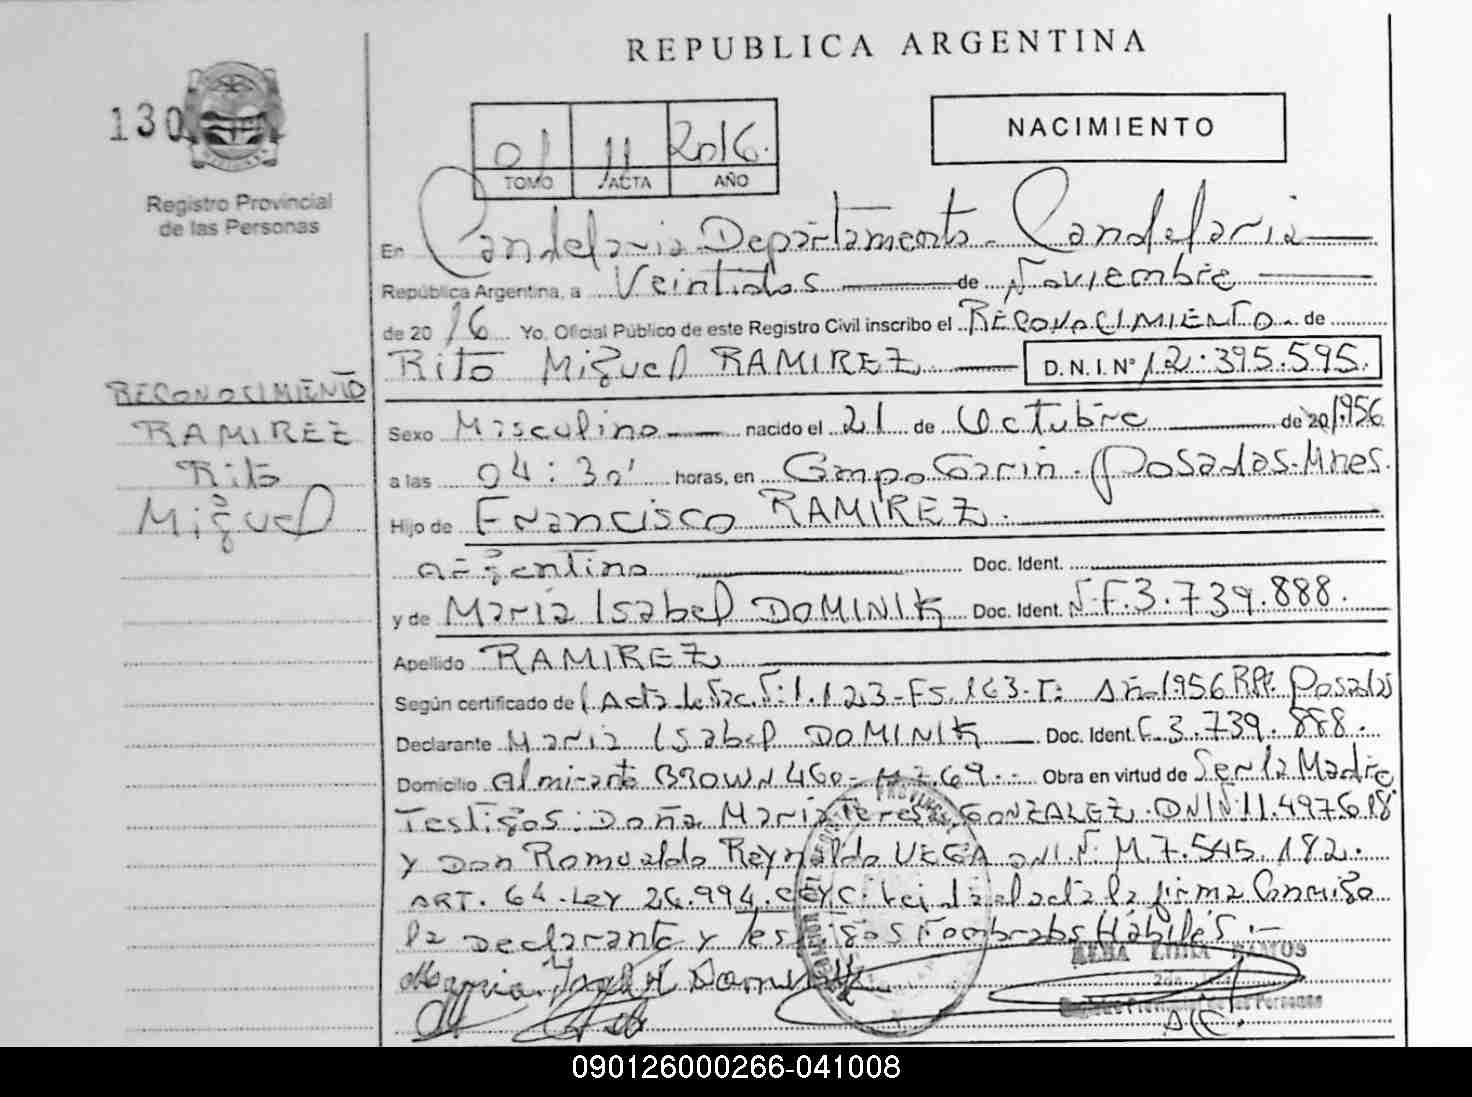 REPUBLICA ARGENTINA
130
Registro Provincial
de las Personas
01 11 2016.
TOMO ACTA AÑO
NACIMIENTO
En Candelaria Departamento Candelaria
República Argentina, a Veintidos de Noviembre
de 2016 Yo, Oficial Público de este Registro Civil inscribo el RECONOCIMIENTO de
Rito Miguel RAMIREZ D.N.I. Nº 12.395.595.
RECONOCIMIENTO
RAMIREZ
Rito
Miguel
Sexo Masculino nacido el 21 de Octubre de 20 1956
a las 04:30' horas, en Campo Garin. Posadas-Mnes.
Hijo de Francisco RAMIREZ.
argentino Doc. Ident.
y de Maria Isabel DOMINIK Doc. Ident. Nº F.3.739.888.
Apellido RAMIREZ
Según certificado de (Acta de Nac. Nº: 1.123-Fº. 163-Tº: Año 1956 RPP. Posadas
Declarante Maria Isabel DOMINIK Doc. Ident. F.3.739.888.
Domicilio Almirante BROWN 460- Obra en virtud de Ser la Madre
Testigos: Doña Maria Teresa GONZALEZ. DNI Nº 11.497.618
y Don Romualdo Reynaldo VEGA DNI. Nº. M 7.545.182.
ART. 64. Ley 26.994. CCYC. Leida el acta la firma Conmigo
la Declarante y Testigos Nombrados Hábiles.-
Maria Isabel Dominik
Registro Provincial de las Personas
090126000266-041008